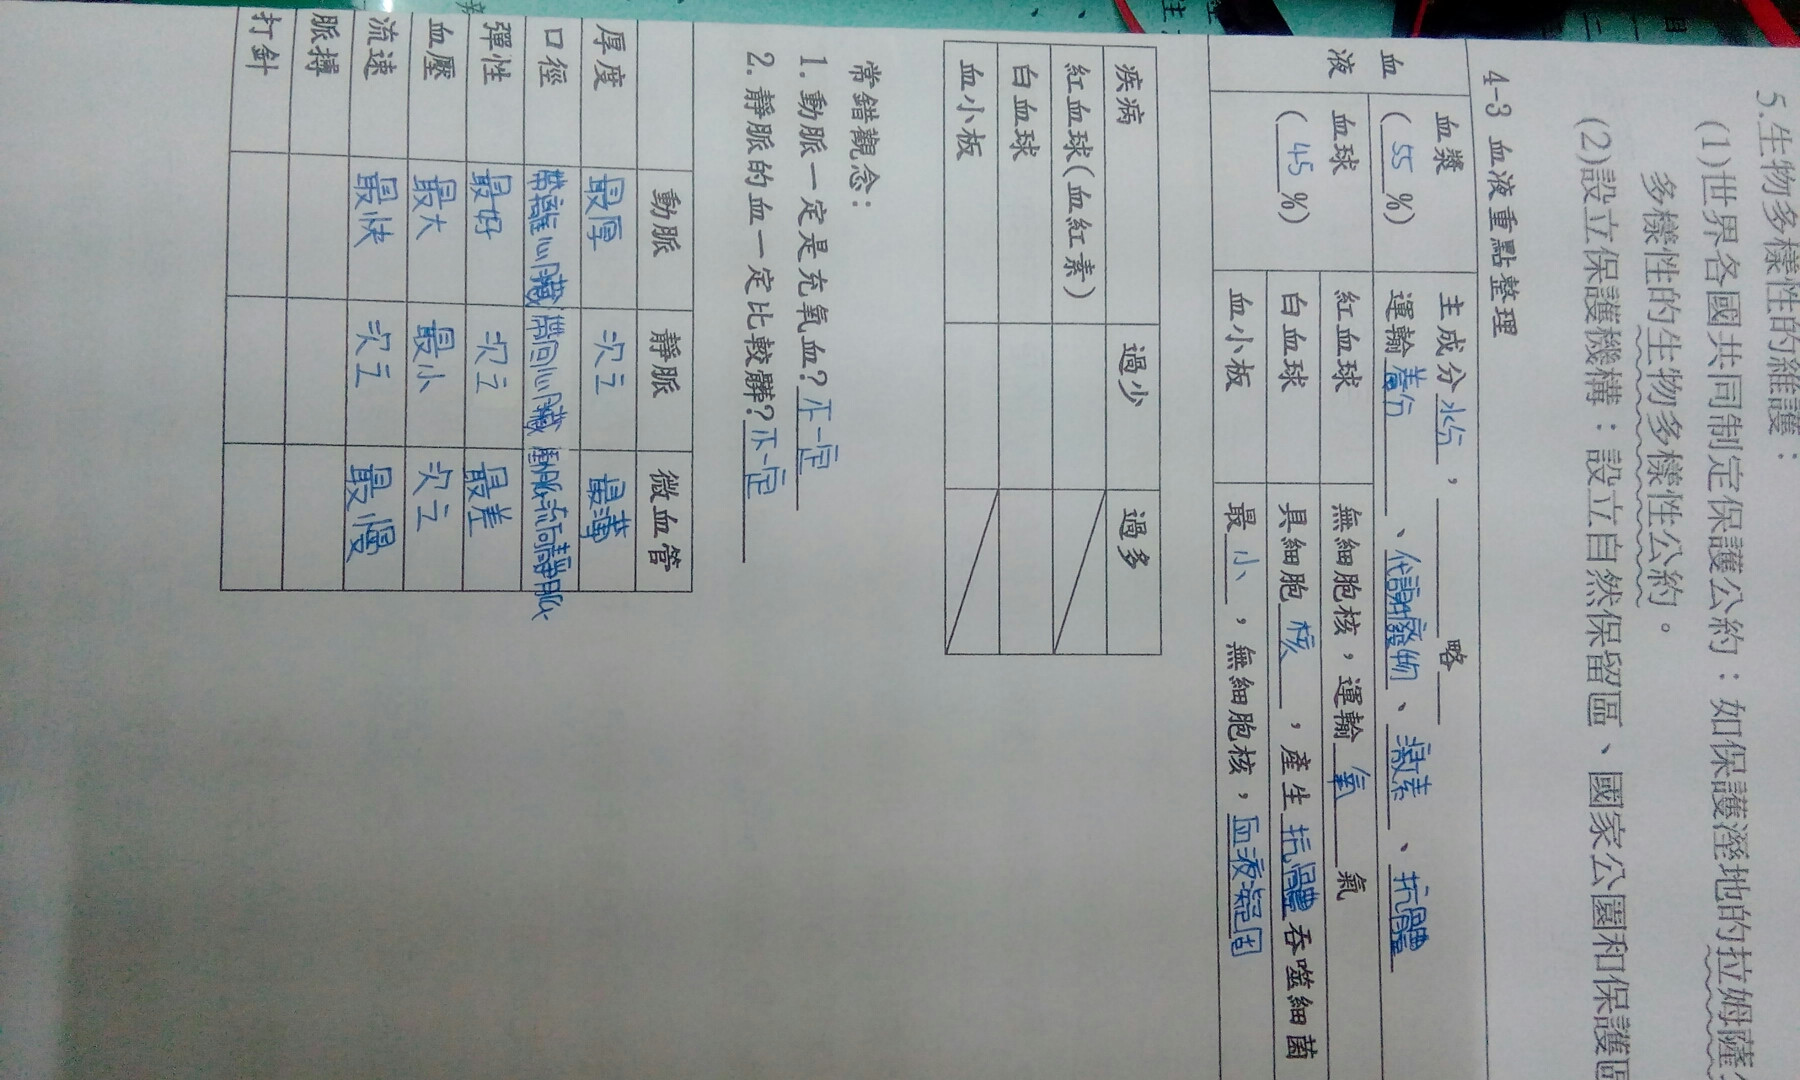 5.生物多樣性的維護：
(1)世界各國共同制定保護公約：如保護溼地的拉姆薩
多樣性的生物多樣性公約。
(2)設立保護機構：設立自然保留區、國家公園和保護區
4-3 血液重點整理
血液
血漿 (55%)
主成分水份，______略__
運輸養份、代謝廢物、激素、抗體
血球 (45%)
紅血球 無細胞核，運輸氧氣
白血球 具細胞核，產生抗體吞噬細菌
血小板 最小，無細胞核，血液凝固
疾病 過少 過多
紅血球(血紅素)
白血球
血小板
常錯觀念：
1.動脈一定是充氧血?不一定
2.靜脈的血一定比較髒?不一定
動脈 靜脈 微血管
厚度 最厚 次之 最薄
口徑 帶離心臟 帶回心臟 動脈流向靜脈
彈性 最好 次之 最差
血壓 最大 最小 次之
流速 最快 次之 最慢
脈搏
打針